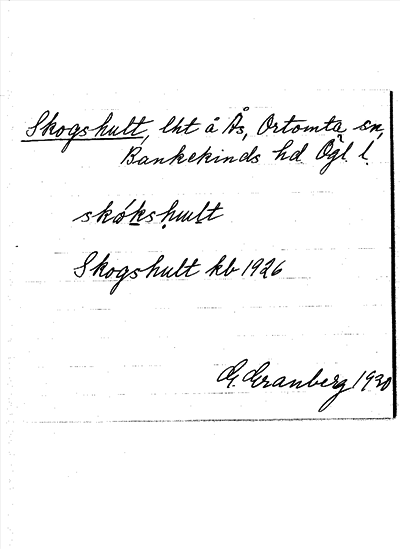 Skogshult, lht å Ås, Örtomta sn,
Bankekinds hd Ögl l.
skókshult
Skogshult kb 1926
G. Granberg 1930